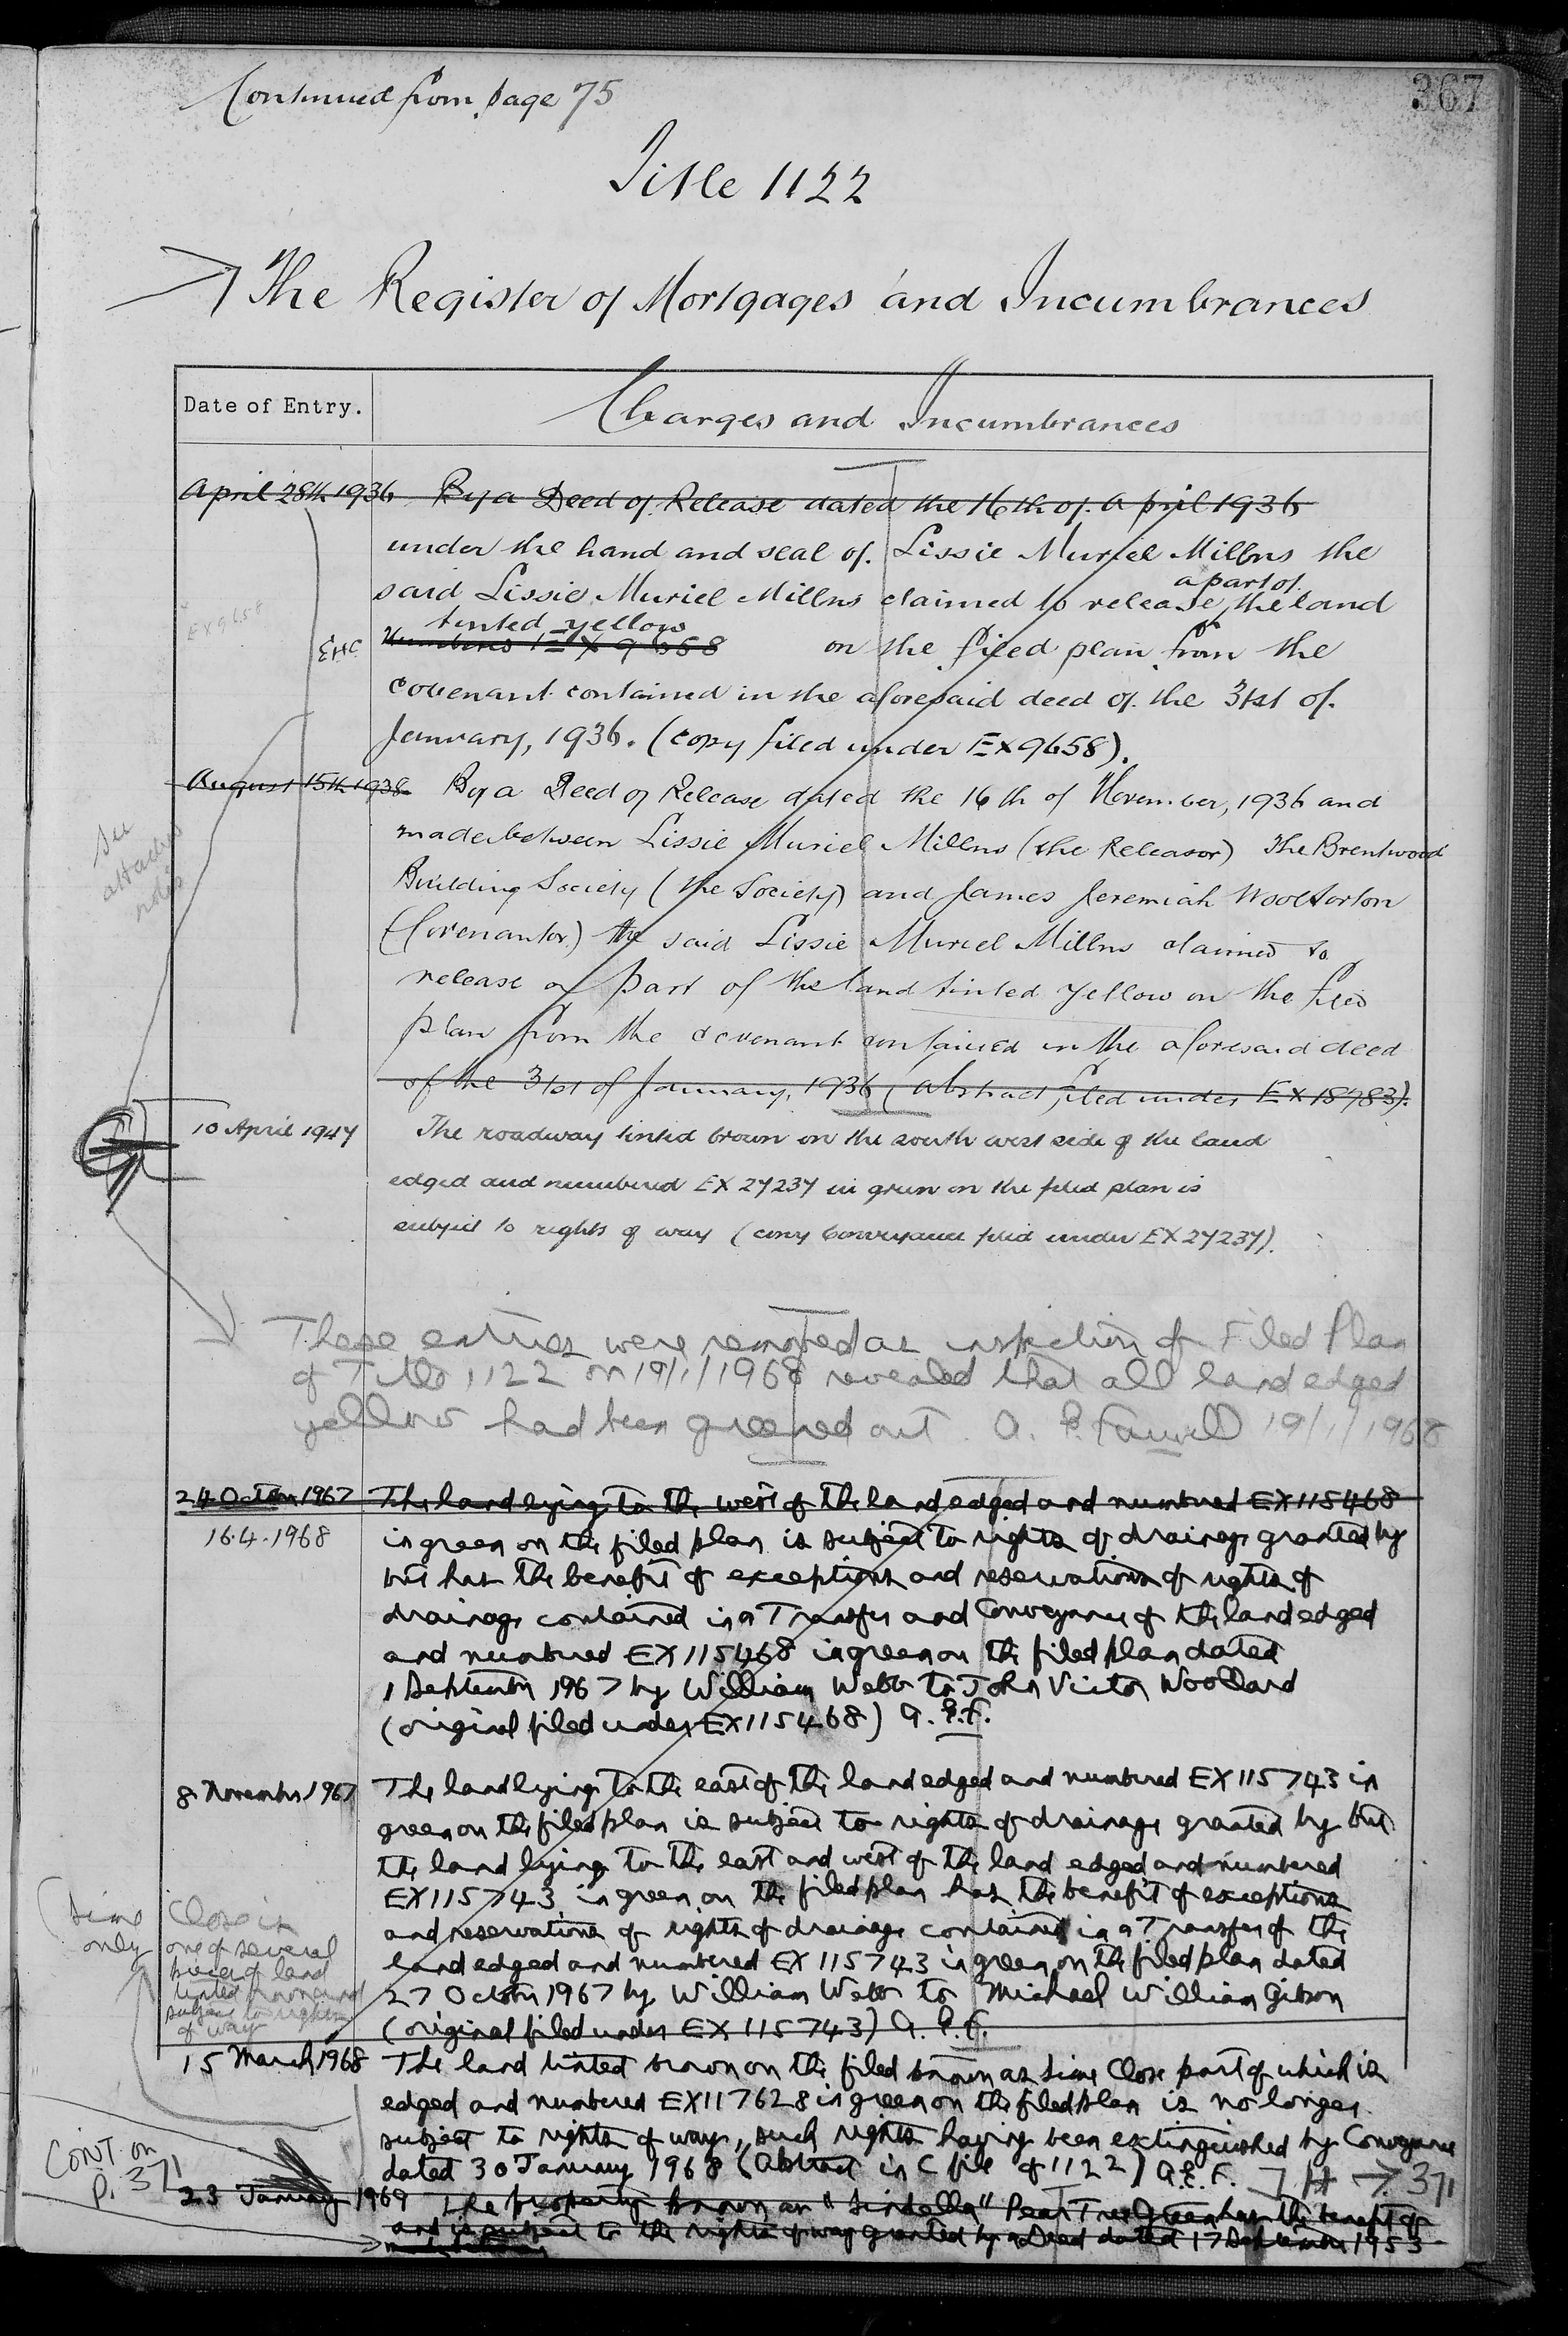 Continued from page 75
367
Title 1122
The Register of Mortgages and Incumbrances
Date of Entry.
Charges and Incumbrances
April 28th 1936 By a Deed of Release dated the 16th of April 1936
under the hand and seal of Lissie Muriel Millns the
a part of
said Lissie Muriel Millns claimed to release the land
tinted yellow
EX9658
EHC
Numbered EX 9658 on the filed plan from the
covenant contained in the aforesaid deed of the 31st of
January, 1936. (copy filed under EX9658).
August 15th 1938 By a Deed of Release dated the 16th of November, 1936 and
made between Lissie Muriel Millns (the Releasor) The Brentwood
See
attached
notes
Building Society (the Society) and James Jeremiah Woolforton
(Covenantor) the said Lissie Muriel Millns claimed to
release a part of the land tinted yellow on the filed
plan from the covenant contained in the aforesaid deed
of the 31st of January, 1936 (abstract filed under EX18983).
10 April 1947 The roadway tinted brown on the south west side of the land
edged and numbered EX 27237 in green on the filed plan is
subject to rights of way (copy Conveyance filed under EX 27237).
These entries were removed as inspection of Filed Plan
of Title 1122 on 19/1/1968 revealed that all land edged
yellow had been greened out. A. E. 19/1/1968
24 October 1967 The land lying to the west of the land edged and numbered EX115468
16.4.1968
in green on the filed plan is subject to rights of drainage granted by
but has the benefit of exceptions and reservations of rights of
drainage contained in a Transfer and Conveyance of the land edged
and numbered EX115468 in green on the filed plan dated
1 September 1967 by William Webb to John Victor Woollard
(original filed under EX115468) A.E.F.
8 November 1967 The land lying to the east of the land edged and numbered EX115743 in
green on the filed plan is subject to rights of drainage granted by but
the land lying to the east and west of the land edged and numbered
EX115743 in green on the filed plan has the benefit of exceptions
and reservations of rights of drainage contained in a Transfer of the
land edged and numbered EX 115743 in green on the filed plan dated
27 October 1967 by William Webb to Michael William Gibson
(original filed under EX 115743) A.E.F.
(Lime
only
Close is
one of several
pieces of land
tinted brown and
subject to rights
of way
15 March 1968 The land tinted brown on the filed known as Lime Close part of which is
edged and numbered EX117628 in green on the filed plan is no longer
subject to rights of way, such rights having been extinguished by Conveyance
dated 30 January 1968 (Abstract in C file of 1122) A.E.F. → 371
CONT. on
P. 371
23 January 1969 The property known as "" Pear Tree Green has the benefit of
and is subject to the rights of way granted by a Deed dated 17 September 1953